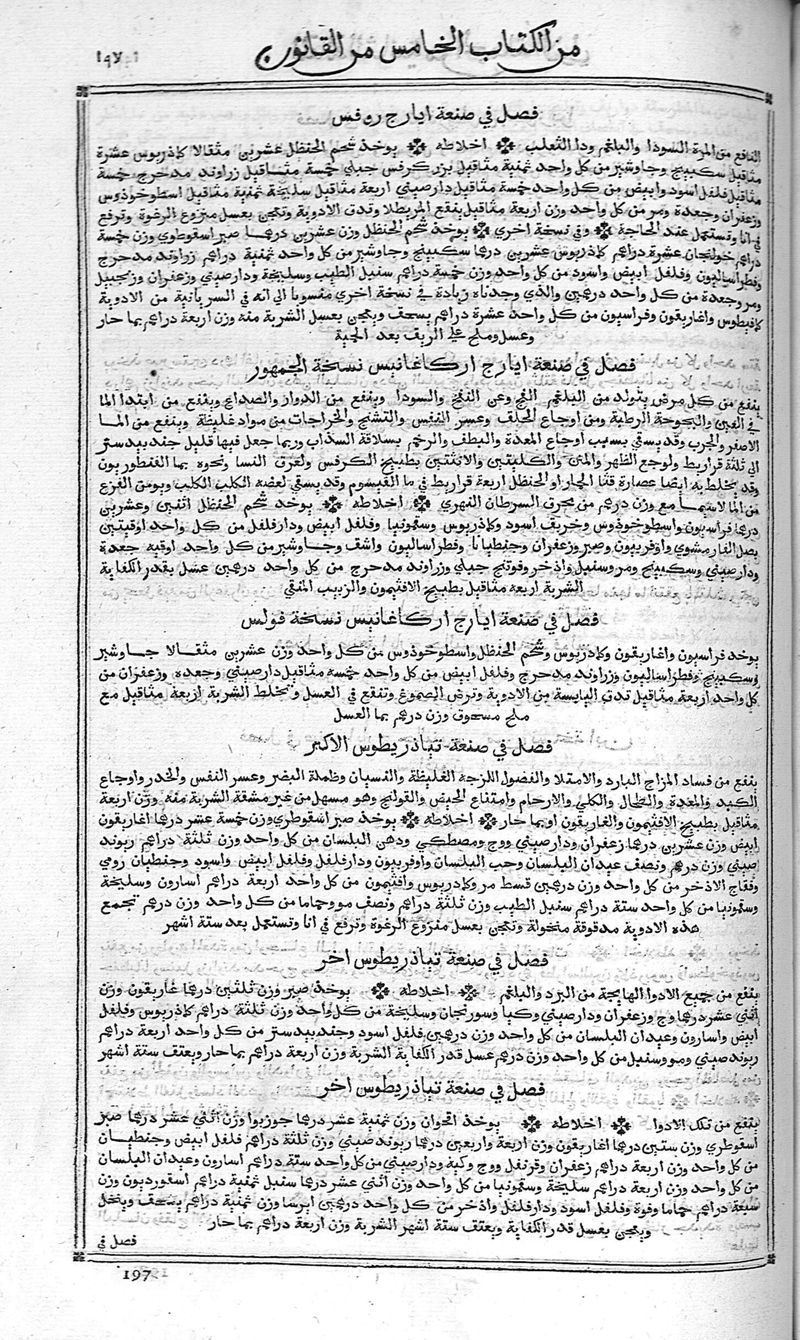 من الكتاب الخامس من القانون
١٩٧
فصل في صنعة ايارج روفس
النافع من المرة السودا والبلغم ودا الثعلب ❊ اخلاطه ❊ يوخذ شحم الحنظل عشرين مثقالا كماذريوس عشرة
مثاقيل سكبينج وجاوشير من كل واحد ثمنية مثاقيل بزر كرفس جبلي خمسة مثاقيل زراوند مدحرج خمسة
مثاقيل فلفل اسود وابيض من كل واحد خمسة مثاقيل دارصيني اربعة مثاقيل سليخة ثمنية مثاقيل اسطوخوذوس
وزعفران وجعدة ومر من كل واحد وزن اربعة مثاقيل ينقع المر بطلا وتدق الادوية وتعجن بعسل منزوع الرغوة وترفع
في انا وتستعمل عند الحاجة ❊ وفي نسخة اخري ❊ يوخذ شحم الحنظل وزن عشرين درهما صبر اسقوطري وزن خمسة
دراهم خولنجان عشرة دراهم كماذريوس عشرين درهما سكبينج وجاوشير من كل واحد ثمنية دراهم زراوند مدحرج
وفطراساليون وفلفل ابيض واسود من كل واحد وزن خمسة دراهم سنبل الطيب وسليخة ودارصيني وزعفران وزنجبيل
ومر وجعدة من كل واحد درهمين والذي وجدناه زيادة في نسخة اخري منسوبا الي انه في السريانية من الادوية
كمافيطوس واغاريقون وفراسيون من كل واحد عشرة دراهم يسحق ويعجن بعسل الشربة منه وزن اربعة دراهم بما حار
وعسل وملح علي الريق بعد الحمية
فصل في صنعة ايارج اركاغانيس نسخة الجمهور
ينفع من كل مرض يتولد من البلغم النج وعن النفخ والسودا وينفع من الدوار والصداع وينفع من ابتدا الما
في العين والبحوحة الرطبة ومن اوجاع الحلق وعسر النفس والتشنج والخراجات من مواد غليظة وينفع من الما
الاصفر والجرب وقد يسقي بسبب اوجاع المعدة والبطن والرحم بسلاقة السذاب وربما جعل فيها قليل جندبيدستر
الي ثلثة قراريط ولوجع الظهر والمتن والكليتين والانثيين بطبيخ الكرفس ولعرق النسا ونحوه بما القنطوريون
وقد يخلط به ايضا عصارة قثا الحمار او الحنظل اربعة قراريط في ما القيسوم وقد يسقي لعضه الكلب الكلب ويومن الفزع
من الما لا سيما مع وزن درهم من محرق السرطان النهري ❊ اخلاطه ❊ يوخذ شحم الحنظل اثنين وعشرين
درهما فراسيون واسطوخوذوس وخربق اسود وكماذريوس وسقمونيا وفلفل ابيض ودارفلفل من كل واحد اوقيتين
بصل الفار مشوي واوفربيون وصبر وزعفران وجنطيانا وفطراساليون واشق وجاوشير من كل واحد اوقيه جعدة
ودارصيني وسكبينج ومر وسنبل واذخر وفوتنج جبلي وزراوند مدحرج من كل واحد درهمين عسل بقدر الكفاية
الشربة اربعة مثاقيل بطبيخ الافتيمون والزبيب المنقي
فصل في صنعة ايارج اركاغانيس نسخة فولس
يوخذ فراسيون واغاريقون وكماذريوس وشحم الحنظل واسطوخوذوس من كل واحد وزن عشرين مثقالا جاوشير
وسكبينج وفطراساليون وزراوند مدحرج وفلفل ابيض من كل واحد خمسه مثاقيل دارصيني وجعده وزعفران من
كل واحد اربعة مثاقيل تدق اليابسة من الادوية وترض الصموغ وتنقع في العسل وتخلط الشربة اربعة مثاقيل مع
ملح مسحوق وزن درهم بما العسل
فصل في صنعة تياذريطوس الاكبر
ينفع من فساد المزاج البارد والامتلا والفضول اللزجة الغليظة والنسيان وظلمة البصر وعسر النفس والخدر واوجاع
الكبد والمعدة والطحال والكلي والارحام وامتناع الحيض والقولنج وهو مسهل من غير مشقة الشربة منه وزن اربعة
مثاقيل بطبيخ الافتيمون والغاريقون او بما حار ❊ اخلاطه ❊ يوخذ صبر اسقوطري وزن خمسة عشر درهما اغاريقون
ابيض وزن عشرين درهما زعفران ودارصيني ووج ومصطكي ودهن البلسان من كل واحد وزن ثلثة دراهم ريوند
صيني وزن درهم ونصف عيدان البلسان وحب البلسان واوفربيون ودارفلفل وفلفل ابيض واسود وجنطيان رومي
وفقاح الاذخر من كل واحد وزن درهمين قسط مر وكماذريوس وافتيمون من كل واحد اربعة دراهم اسارون وسليخة
وسقمونيا من كل واحد ستة دراهم سنبل الطيب وزن ثلثة دراهم ونصف مو وحماما من كل واحد وزن درهم تجمع
هذه الادوية مدقوقة منخولة وتعجن بعسل منزوع الرغوة وترفع في انا وتستعمل بعد ستة اشهر
فصل في صنعة تياذريطوس اخر
ينفع من جميع الادوا الهايجة من البرد والبلغم ❊ اخلاطه ❊ يوخذ صبر وزن ثلثين درهما غاريقون وزن
اثني عشر درهما وج وزعفران ودارصيني وكيا وسورنجان وسليخة من كل واحد وزن ثلثة دراهم كماذريوس وفلفل
ابيض واسارون وعيدان البلسان من كل واحد وزن درهمين فلفل اسود وجندبيدستر من كل واحد اربعة دراهم
ريوند صيني ومو وسنبل من كل واحد وزن درهم عسل قدر الكفاية الشربة وزن اربعة دراهم بما حار ويعتق ستة اشهر
فصل في صنعة تياذريطوس اخر
ينفع من تلك الادوا ❊ اخلاطه ❊ يوخذ اقحوان وزن ثمنية عشر درهما جوزبوا وزن اثني عشر درهما صبر
اسقوطري وزن ستين درهما اغاريقون وزن اربعة واربعين درهما ريوند صيني وزن ثلثة دراهم فلفل ابيض وجنطيان
من كل واحد وزن اربعة دراهم زعفران وقرنفل ووج وكية ودارصيني من كل واحد ستة دراهم اسارون وعيدان البلسان
من كل واحد وزن اربعة دراهم سليخة وسقمونيا من كل واحد وزن اثني عشر درهما سنبل ثمنية دراهم اسقورديون وزن
سبعة دراهم حماما وفوة وفلفل اسود ودارفلفل واذخر من كل واحد درهمين ايرسا وزن ثمنية دراهم يسحق وينخل
ويعجن بعسل قدر الكفاية ويعتق ستة اشهر الشربة وزن اربعة دراهم بما حار
فصل في
197